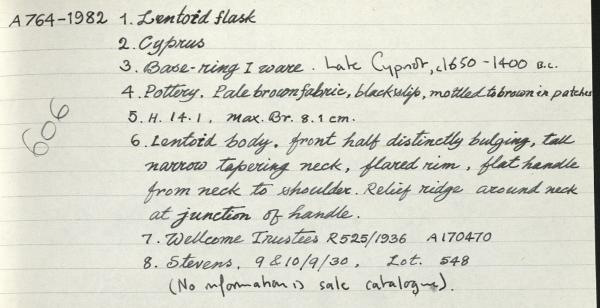 A764-1982 1. Lentoid flask
2. Cyprus
3. Base-ring I ware. Late Cypriot, c1650-1400 B.C.
4. Pottery. Pale brown fabric, black slip, mottled to brown in patches
5. H. 14.1, max. Br. 8.1 cm.
606
6. Lentoid body, front half distinctly bulging, tall
narrow tapering neck, flared rim, flat handle
from neck to shoulder. Relief ridge around neck
at junction of handle.
7. Wellcome Trustees R525/1936 A170470
8. Stevens, 9 & 10/9/30, Lot. 548
(No information in sale catalogue).